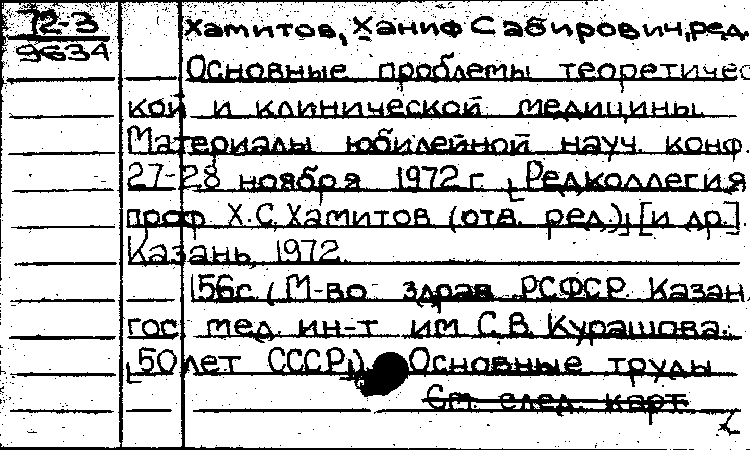 72-3
9634
Хамитов, Ханиф Сабирович, ред.
Основные проблемы теоретичес
кой и клинической медицины.
Материалы юбилейной науч. конф.
27-28 ноября 1972 г. [Редколлегия
проф Х.С. Хамитов (отв. ред.)] [и др.]
Казань, 1972.
156с. (М-во здрав РСФСР. Казан.
гос мед. ин-т им С.В. Курашова.
[50 лет СССР]) Основные труды
См. след. карт.